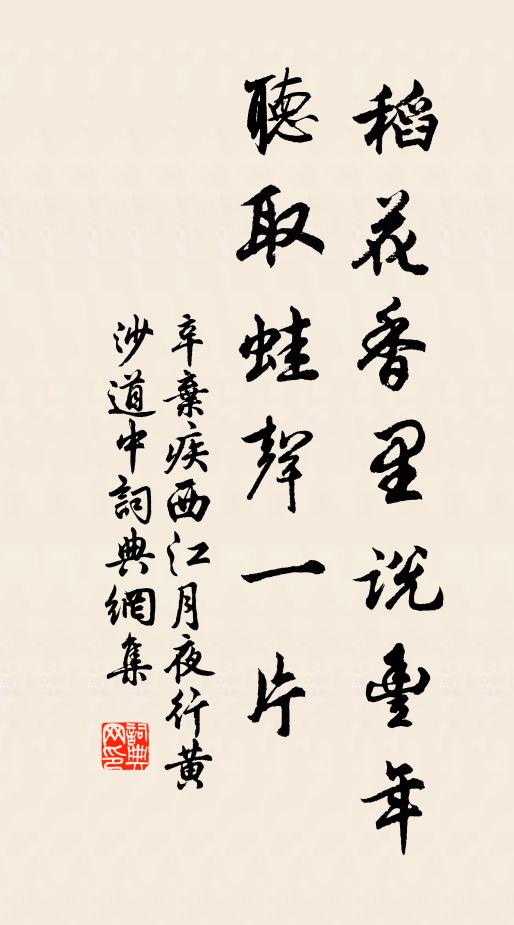 稻花香里説豐年
聽取蛙聲一片
辛棄疾西江月夜行黄
沙道中詞典網集
詞典
网印